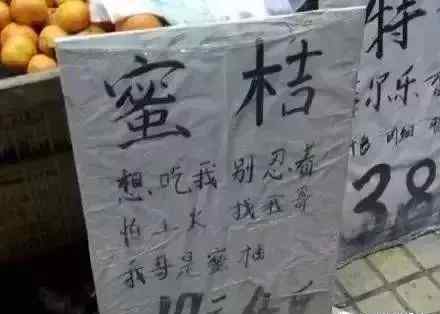 蜜桔
想吃我 别忍者
怕上火 找我哥
我哥是蜜柚
特
38